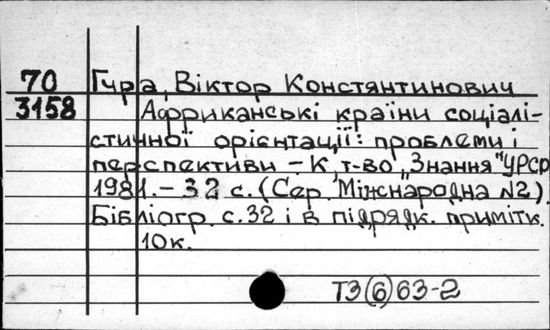 70 Гура, Віктор Констянтинович
3158 Африканські країни соціалі-
стичної орієнтації: проблеми і
перспективи – К, т-во „Знання" УРСР,
1981. – 32 с. (Сер. Міжнародна №2).
Бібліогр. с. 32 і в підрядк. примітк.
10к.
Т3(6)63-2